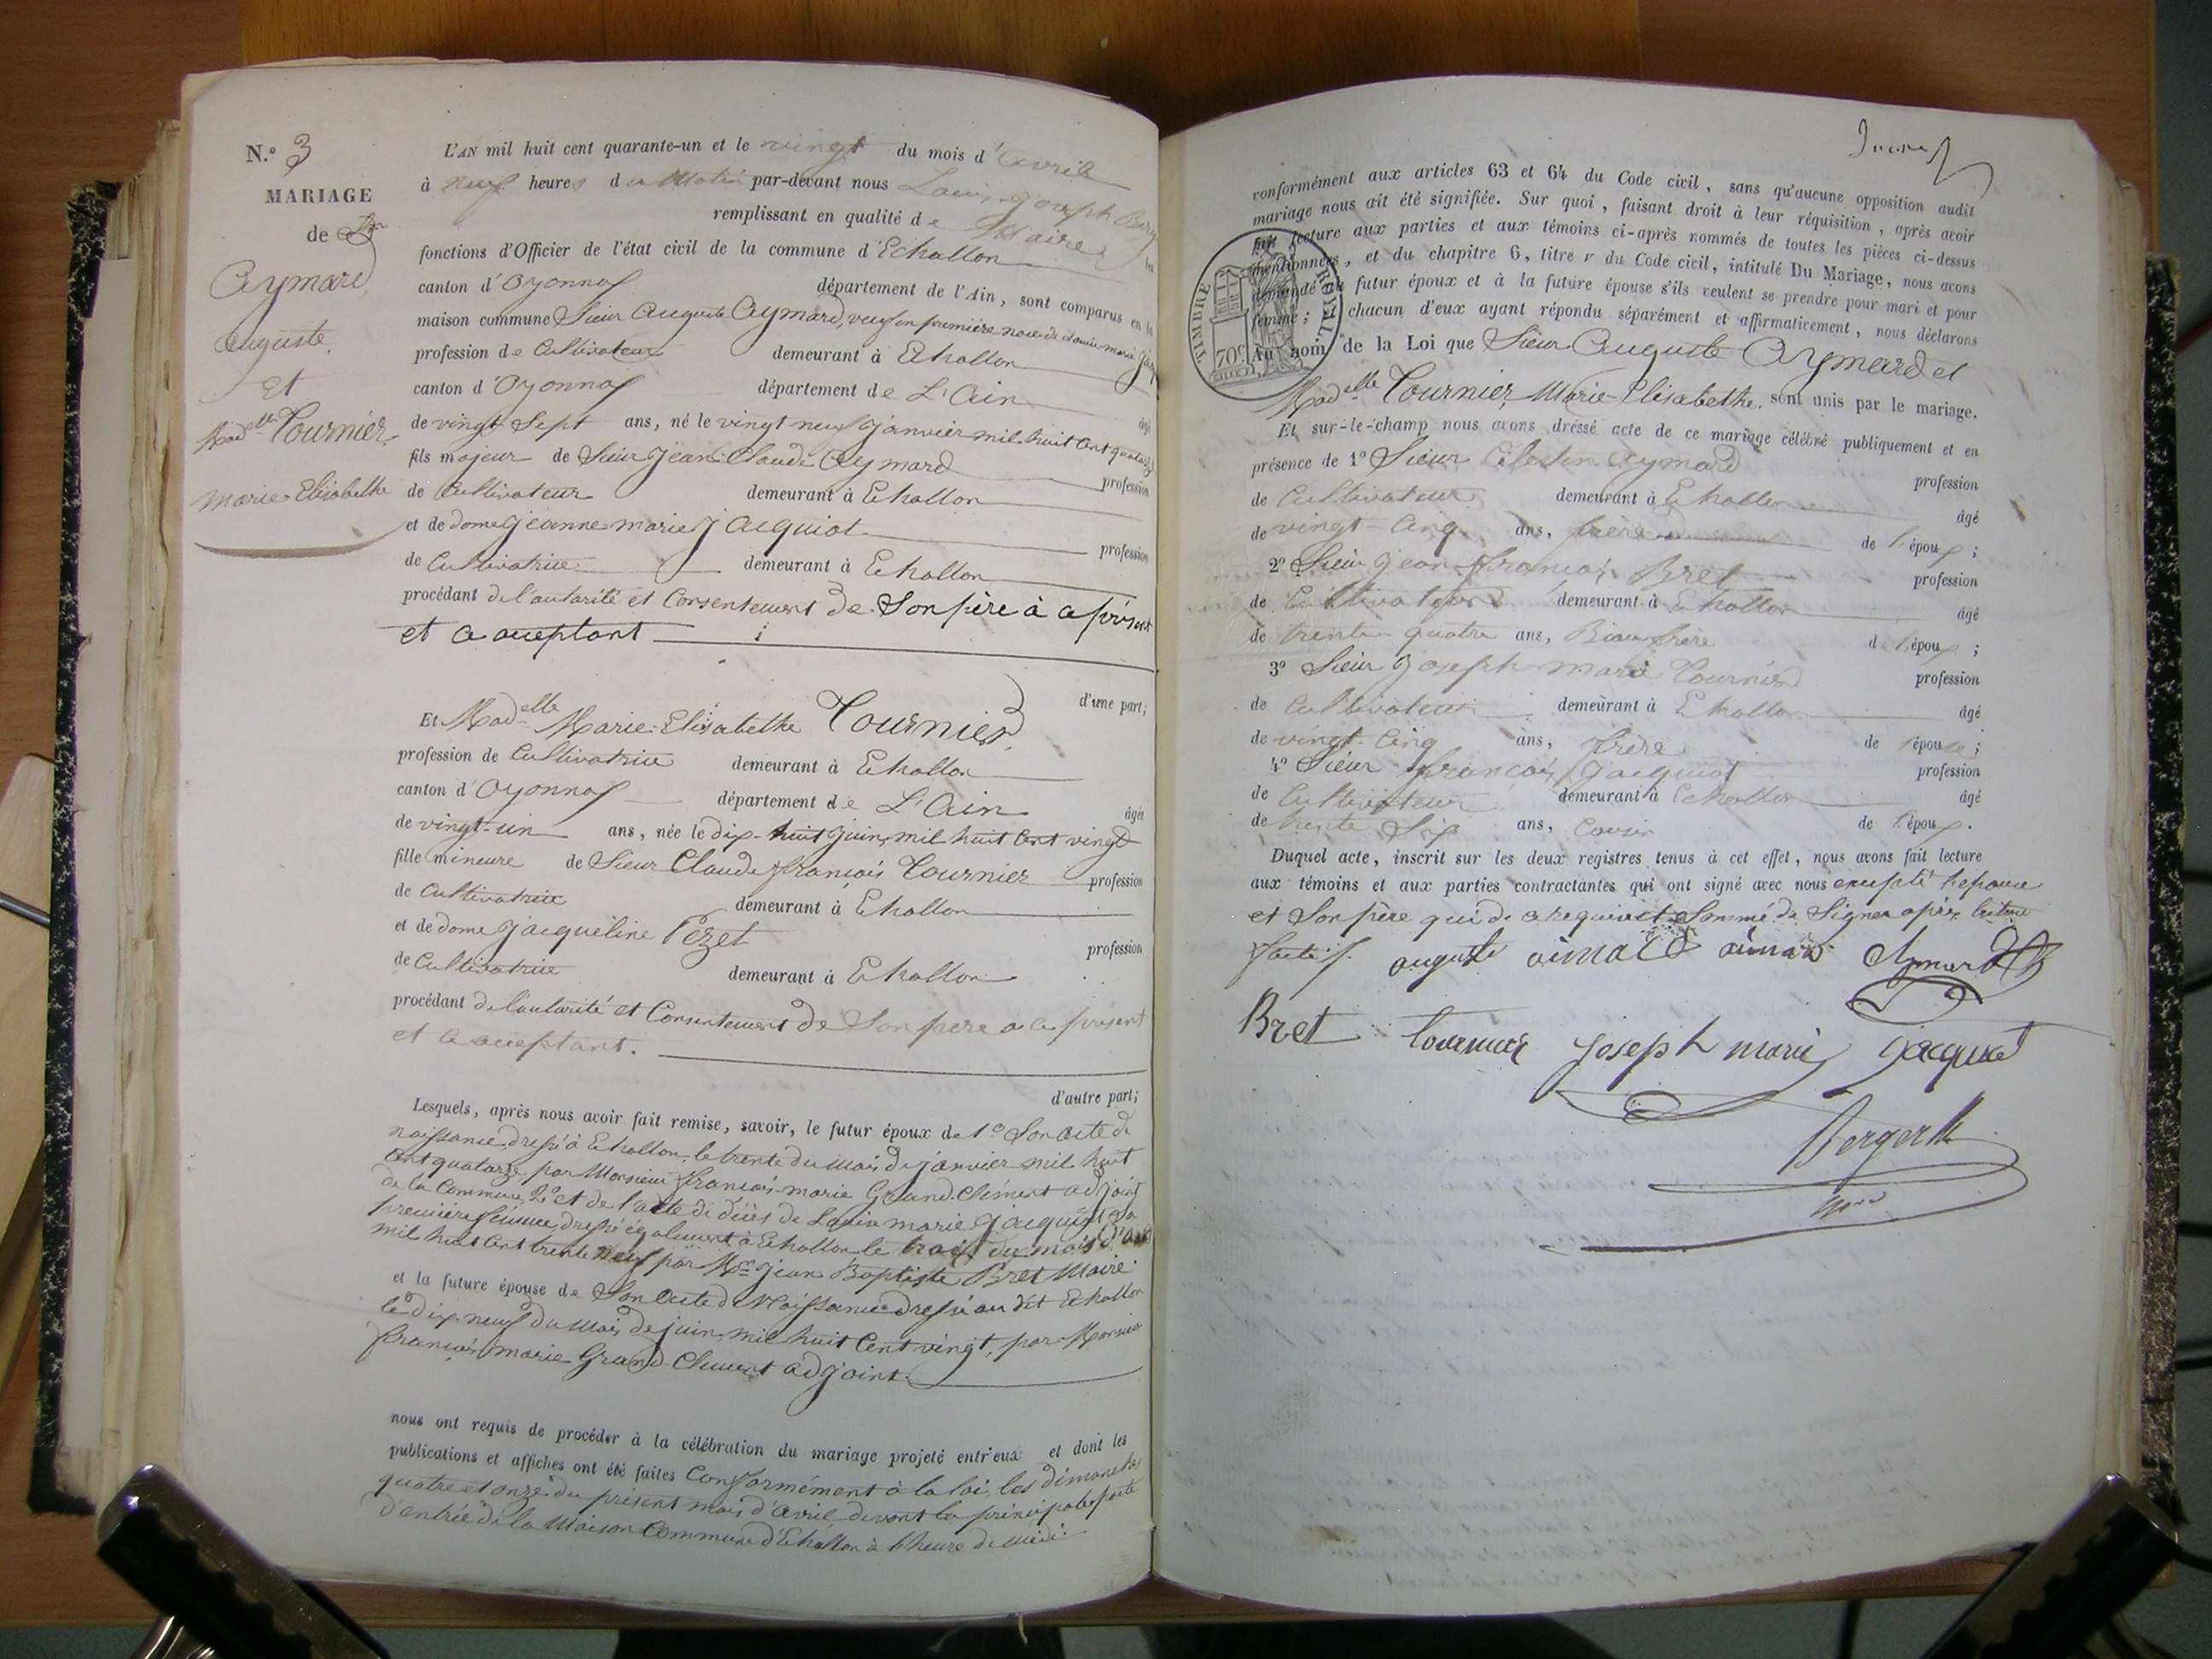 N.º 3
MARIAGE
de Sr
Aymard,
Auguste,
Et
Mad.elle Tournier,
Marie-Elisabethe
L'AN mil huit cent quarante-un et le vingt du mois d'avril
à neuf heures du matin par-devant nous Louis Joseph
remplissant en qualité de Maire
fonctions d'Officier de l'état civil de la commune d'Echallon
canton d'Oyonnax département de l'Ain, sont comparus en la
maison commune Sieur Auguste Aymard, veuf en première noce de Louise marie
profession de Cultivateur demeurant à Echallon
canton d'Oyonnax département de L'Ain
âgé
de vingt Sept ans, né le vingt neuf Janvier mil huit cent quatorze
fils majeur de Sieur Jean-Claude Aymard
profession
de Cultivateur demeurant à Echallon
et de dame Jeanne marie Jacquiot
profession
de Cultivatrice demeurant à Echallon
procédant de l'autorité et Consentement de Son père à ce présent
et ce acceptant
d'une part;
Et Madelle Marie-Elisabethe Tournier,
profession de Cultivatrice demeurant à Echallon
canton d'Oyonnax département de L'Ain
âgée
de vingt-un ans, née le dix-huit juin mil huit cent vingt
fille mineure de Sieur Claude François Tournier profession
de Cultivatrice demeurant à Echallon
et de dame Jacqueline Pezet
profession
de Cultivatrice demeurant à Echallon
procédant de l'autorité et Consentement de Son pere a ce présent
et ce acceptant.
d'autre part;
Lesquels, après nous avoir fait remise, savoir, le futur époux de 1º Son acte de
naissance, dressé à Echallon, le trente du mois de janvier mil huit
cent quatorze par Monsieur François-marie Grand-Clément adjoint
de la Commune, 2º et de l'acte de décès de Louise marie Jacquiot sa
première femme, dressé également à Echallon le trois du mois d'
mil huit cent trente neuf par Mr Jean Baptiste Bret Maire
et la future épouse de Son acte de Naissance dressé au dit Echallon
le dix-neuf du mois de juin, mil huit cent vingt, par Monsieur
François marie Grand-Clément adjoint.
nous ont requis de procéder à la célébration du mariage projeté entr'eux et dont les
publications et affiches ont été faites Conformément à la loi, les dimanches
quatre et onze du présent mois d'avril devant la principale porte
d'entrée de la Maison Commune d'Echallon à l'heure de midi.
conformément aux articles 63 et 64 du Code civil, sans qu'aucune opposition audit
mariage nous ait été signifiée. Sur quoi, faisant droit à leur réquisition, après avoir
fait lecture aux parties et aux témoins ci-après nommés de toutes les pièces ci-dessus
mentionnées, et du chapitre 6, titre v du Code civil, intitulé Du Mariage, nous avons
demandé au futur époux et à la future épouse s'ils veulent se prendre pour mari et pour
femme; chacun d'eux ayant répondu séparément et affirmativement, nous déclarons
Au nom de la Loi que Sieur Auguste Aymard et
Madelle Tournier, Marie-Elisabethe. sont unis par le mariage.
TIMBRE ROYAL
70c
Et sur-le-champ nous avons dressé acte de ce mariage célébré publiquement et en
présence de 1º Sieur Célestin Aymard
profession
de Cultivateur demeurant à Echallon
âgé
de vingt-cinq ans, frère de l'époux;
2º Sieur Jean-François Bret
profession
de Cultivateur demeurant à Echallon
âgé
de trente-quatre ans, Beau frère de l'époux;
3º Sieur Joseph marie Tournier
profession
de Cultivateur demeurant à Echallon
âgé
de vingt-cinq ans, frère de l'épouse;
4º Sieur François Jacquiot
profession
de Cultivateur demeurant à Echallon
âgé
de trente Six ans, Cousin de l'époux.
Duquel acte, inscrit sur les deux registres tenus à cet effet, nous avons fait lecture
aux témoins et aux parties contractantes qui ont signé avec nous excepté l'épouse
et Son père qui de ce requis et Sommé de Signer après lecture
faite.
auguste aimard aimard Aymard
Bret tournier joseph marie jacquiot